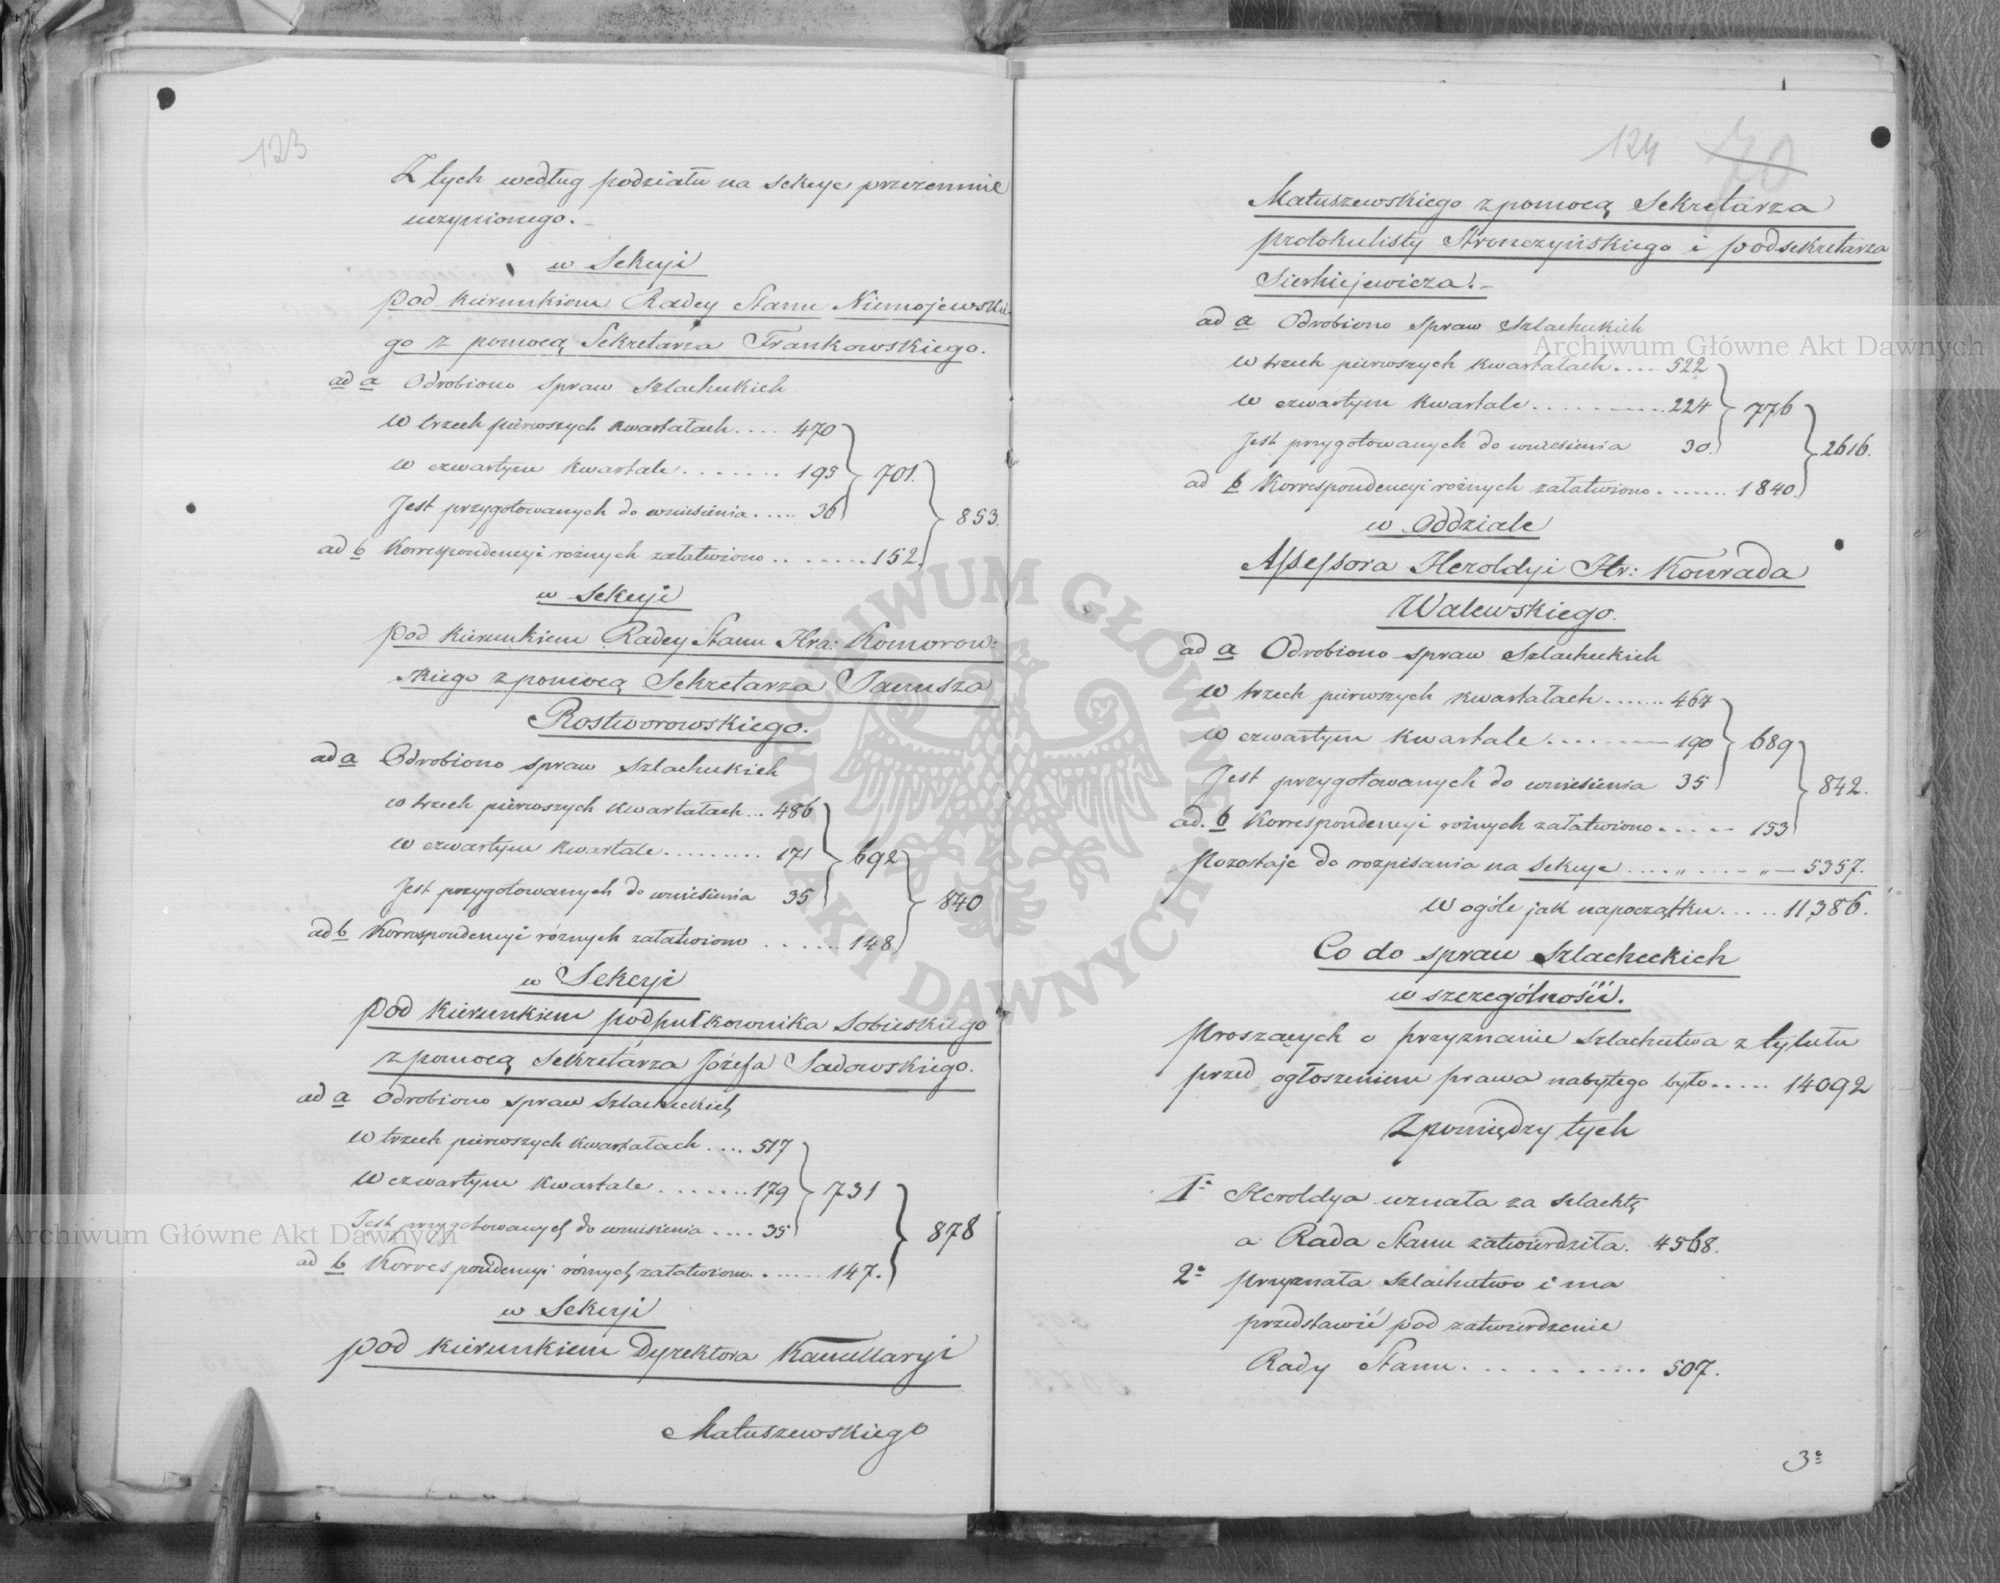 123
Z tych według podziału na sekcye przezemnie
uczynionego. –
w Sekcyi
pod kierunkiem Radcy Stanu Niemojewskie-
go z pomocą Sekretarza Frankowskiego.
ad a Odrobiono spraw szlacheckich
w trzech pierwszych kwartałach .... 470
w czwartym kwartale ........ 195 } 701.
Jest przygotowanych do wniesienia ..... 36 } 853.
ad b Korrespondencyi różnych załatwiono ........ 152.
w Sekcyi
pod kierunkiem Radcy Stanu Hra: Komorow=
skiego z pomocą Sekretarza Janusza
Rostworowskiego.
ad a Odrobiono spraw szlacheckich
w trzech pierwszych kwartałach ... 486
w czwartym kwartale ......... 171 } 692
Jest przygotowanych do wniesienia 35 } 840
ad b Korrespondencyi różnych załatwiono ...... 148.
w Sekcyi
pod kierunkiem podpułkownika Sobieskiego
z pomocą Sekretarza Józefa Sadowskiego.
ad a Odrobiono spraw szlacheckich
w trzech pierwszych kwartałach .... 517
w czwartym kwartale ........ 179 } 731
Jest przygotowanych do wniesienia .... 35 } 878
ad b Korrespondencyi różnych załatwiono ...... 147.
w Sekcyi
pod kierunkiem Dyrektora Kancellaryi
Matuszewskiego
124 70
Matuszewskiego z pomocą Sekretarza
protokulisty Stronczyńskiego i podsekretarza
Sierkiejewicza. –
ad a Odrobiono spraw szlacheckich
w trzech pierwszych kwartałach .... 522
w czwartym kwartale .......... 224 } 776
Jest przygotowanych do wniesienia 30. } 2616.
ad b Korrespondencyi różnych załatwiono ....... 1840.
w Oddziale
Assessora Heroldyi Hr: Konrada
Walewskiego.
ad a Odrobiono spraw Szlacheckich
w trzech pierwszych kwartałach ...... 464
w czwartym kwartale ......... 190 } 689
Jest przygotowanych do wniesienia 35 } 842.
ad. b Korrespondencyi różnych załatwiono ..... 153
Pozostaje do rozpisania na sekcye .... „ .... „ — 5357.
W ogóle jak napoczątku ..... 11,386.
Co do spraw Szlacheckich
w szczególności.
Proszących o przyznanie szlachectwa z tytułu
przed ogłoszeniem prawa nabytego było ..... 14092
Zpomiędzy tych
1º Heroldya uznała za szlachtę
a Rada Stanu zatwierdziła. 4568.
2º przyznała szlachectwo i ma
przedstawić pod zatwierdzenie
Rady Stanu .......... 507.
3º
Archiwum Główne Akt Dawnych
Archiwum Główne Akt Dawnych
ARCHIWUM GŁÓWNE AKT DAWNYCH